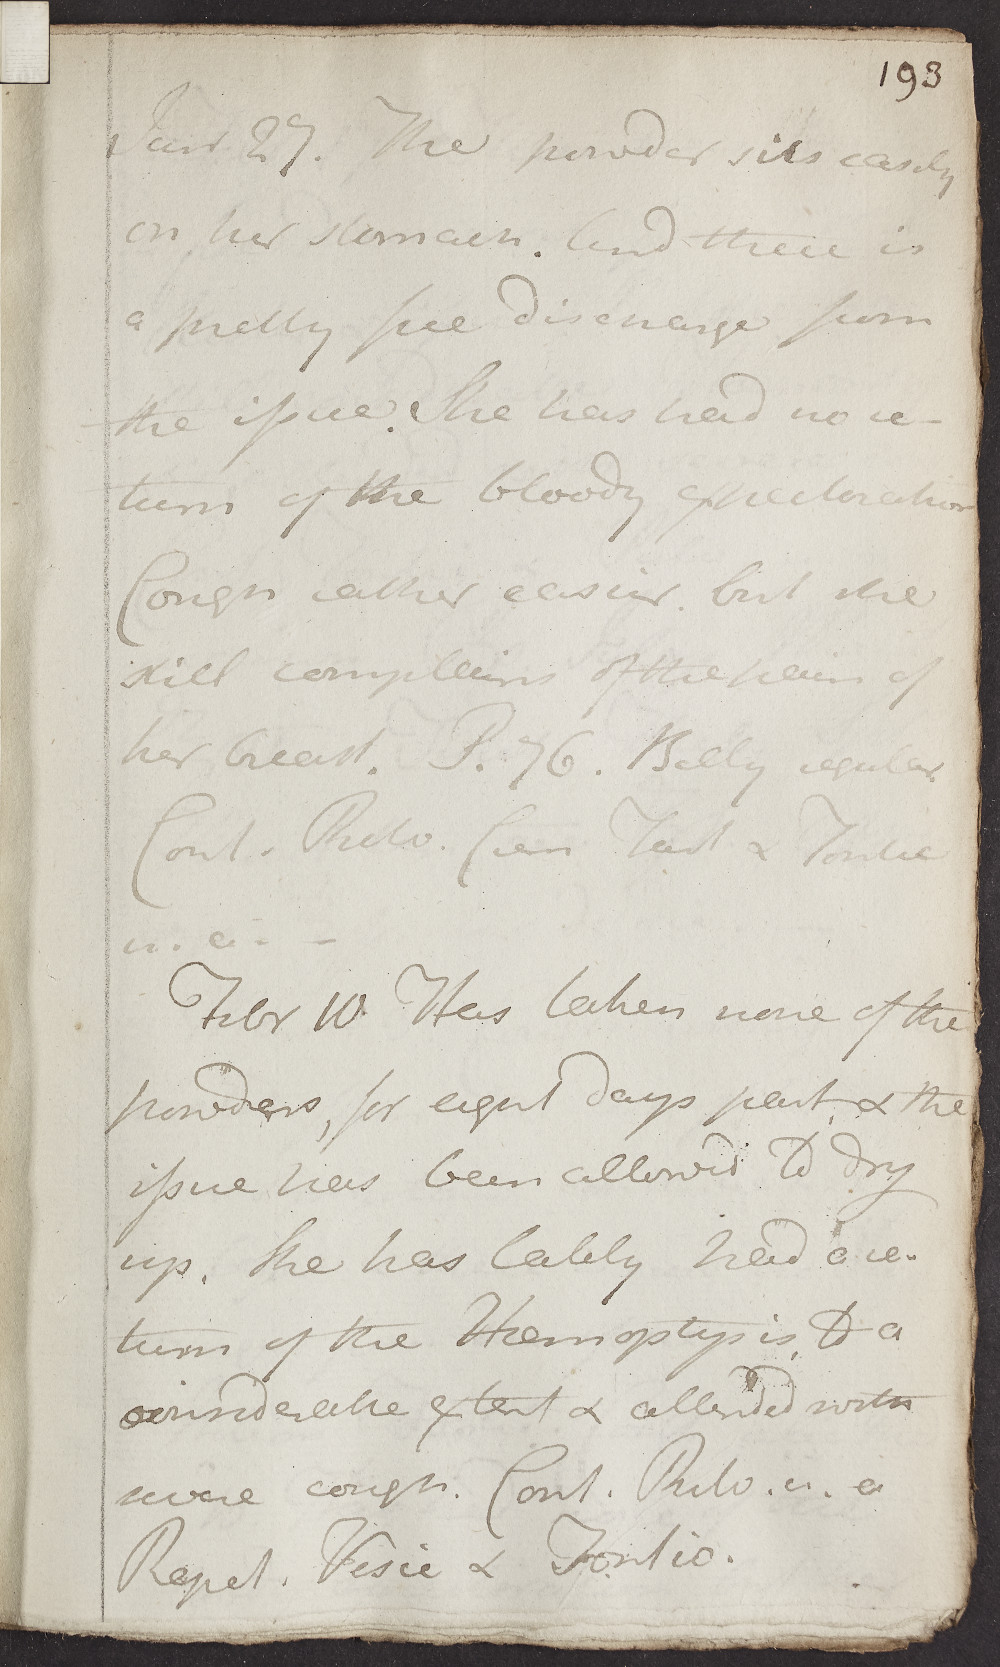 193
Janr 27. The powder sits easily
on her stomach. And there is
a pretty free discharge from
the issue. She has had no re-
turn of the bloody expectoration
Cough rather easier. but she
still complains of the pain of
her breast. P. 76. Belly regular.
Cont. Pulv. Crem Tart &
u. a. -
Febr 10. Has taken none of the
powders, for eight days past, & the
issue has been allow'd to dry
up. She has lately had a re-
turn of the Hemoptysis, to a
considerable extent & attended with
more cough. Cont. Pulv. u. a
Repet. Vesic &